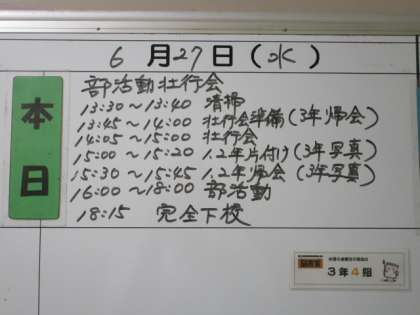 6 月 27 日 (水)
本日
部活動壮行会
13:30～13:40 清掃
13:45～14:00 壮行会準備(3年帰会)
14:05～15:00 壮行会
15:00～15:20 1.2年片付け(3年写真)
15:30～15:45 1.2年帰会(3年写真)
16:00～18:00 部活動
18:15 完全下校
3年4組